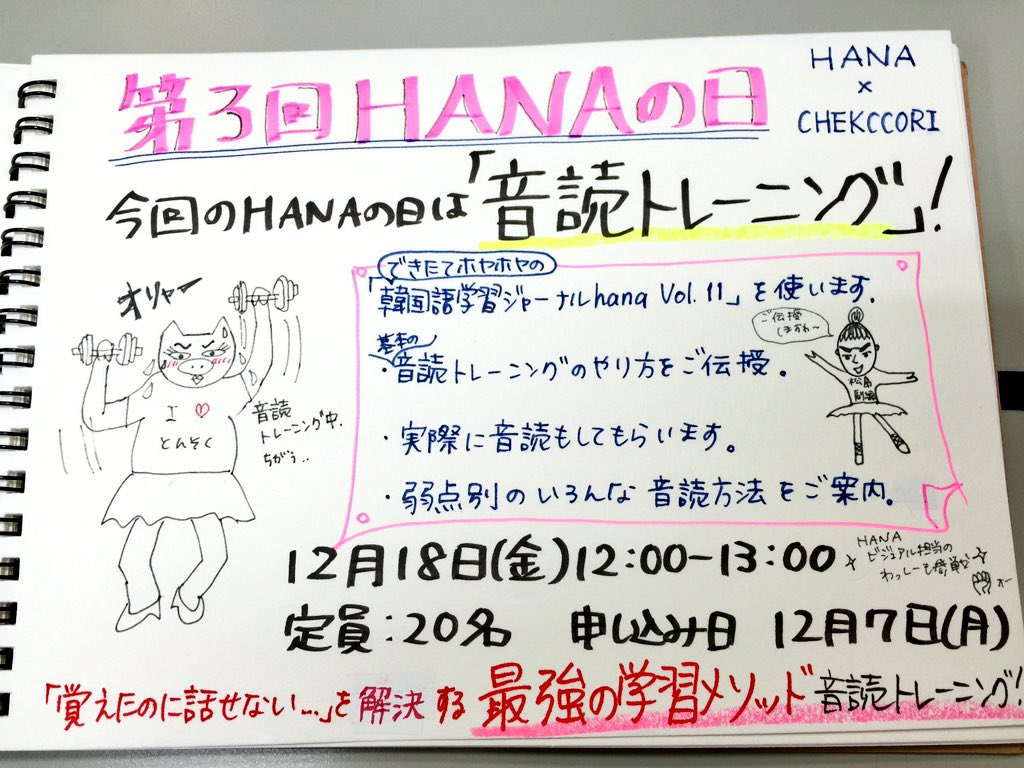 第3回HANAの日
HANA
×
CHEKCCORI
今回のHANAの日は「音読トレーニング」!
できたてホヤホヤの
「韓国語学習ジャーナルhana Vol.11」を使います。
基本の
・音読トレーニングのやり方をご伝授。
・実際に音読もしてもらいます。
・弱点別のいろんな音読方法をご案内。
ご伝授
しますわ〜
松島
副編
オリャー
I ♡
とんそく
音読
トレーニング中.
ちがう..
12月18日(金)12:00-13:00
HANA
ビジュアル担当の
わっしーも参戦
オー
定員:20名 申し込み日 12月7日(月)
「覚えたのに話せない...」を解決する最強の学習メソッド音読トレーニング!